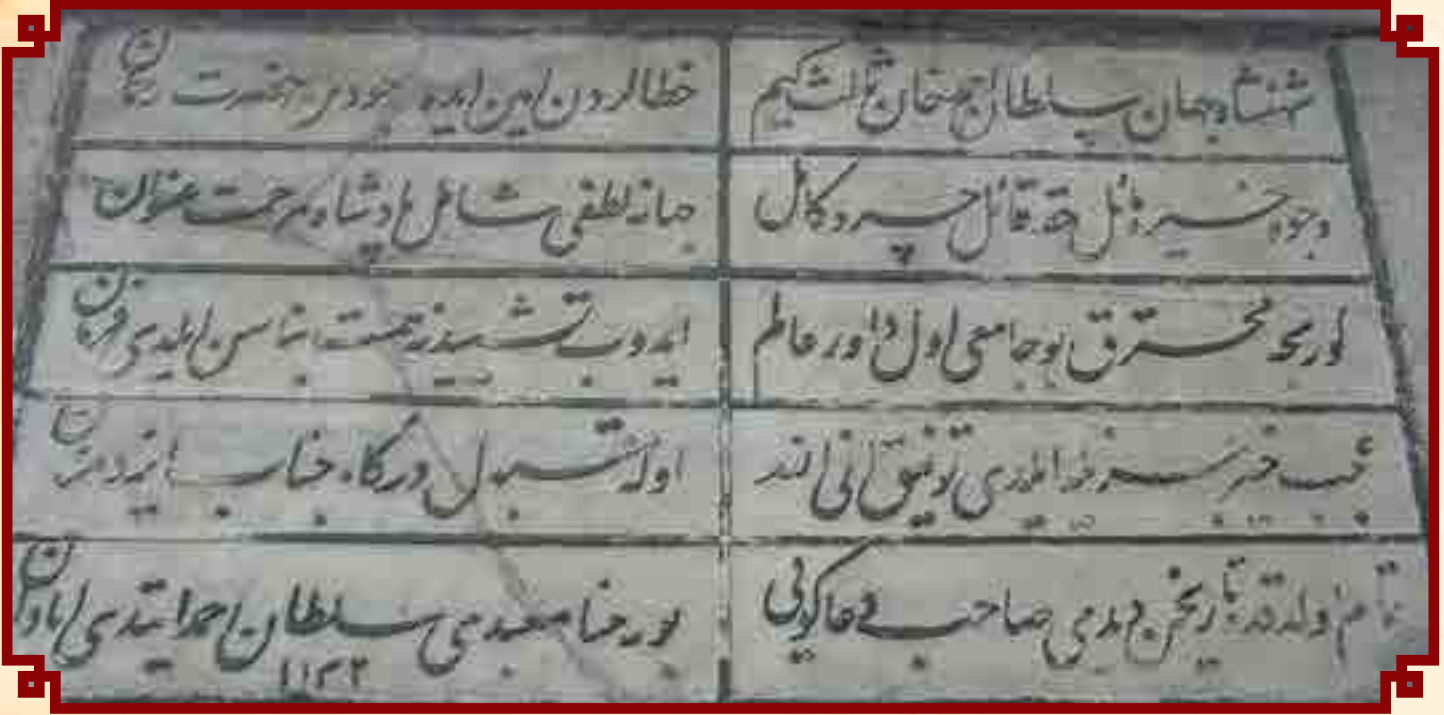 شهنشاه جهان سلطان احمد خان ثالث کیم خطالردن امین ایده وجودین حضرت رحمان
وجودی خیره مائل حقه قائل جود کامل جهانه لطفی شامل پادشاه مرحمت عنوان
اولیجق محترق بو جامعی اول داور عالم ایدوب تشییدنه همت بناسن ایلدی فرمان
خدا ایلدی توفیقی انی اولنه قبول درگاه جناب ایزد منان
تمام اولدقده تاریخن دیدی صاحب دعاکویی بو رعنا معبدی سلطان احمد ایتدی آبادان
۱۱۴۲